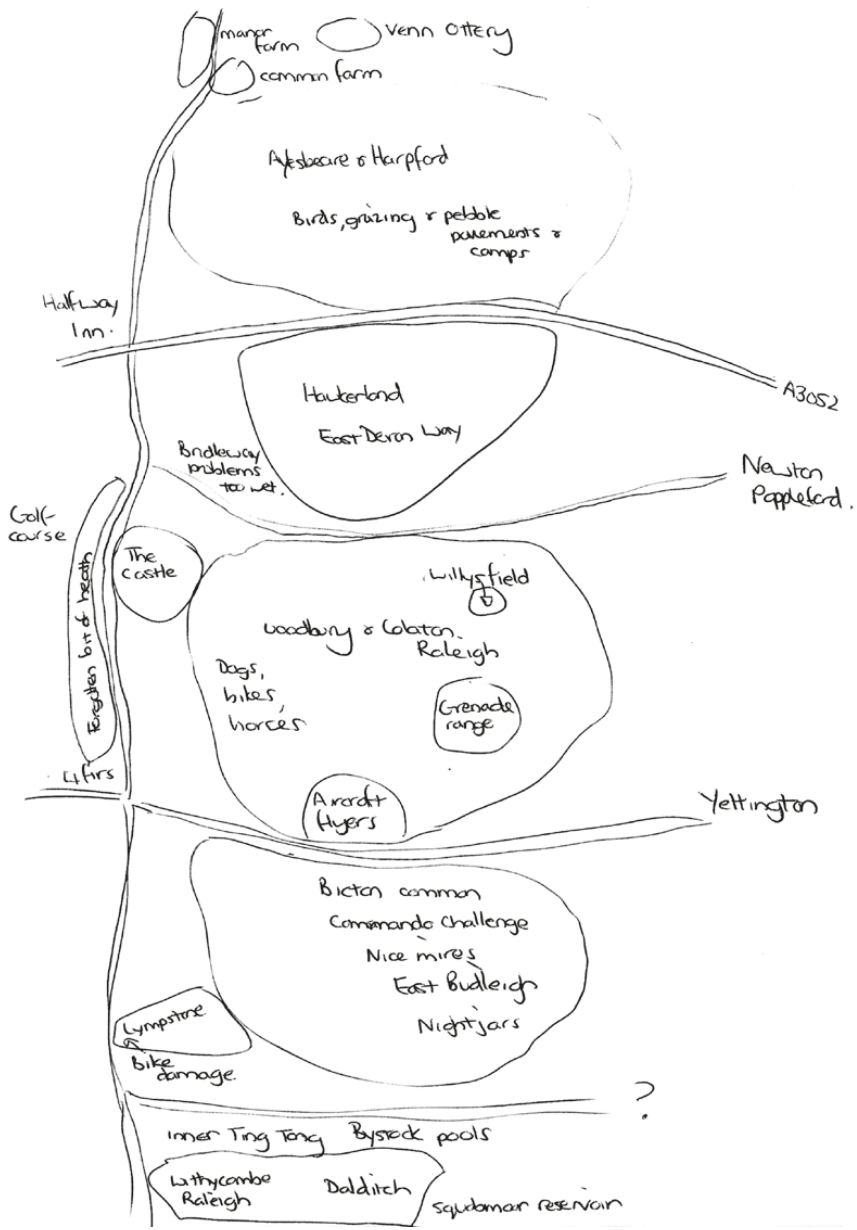 manor
farm
Venn Ottery
common farm
Aylesbeare & Harpford
Birds, grazing & pebble
pavements &
camps
Halfway
Inn.
A3052
Hawkerland
East Devon Way
Bridleway
problems
too wet.
Newton
Poppleford.
Golf-
course
The
Castle
Forgotten bit of heath
Willysfield
Woodbury & Colaton
Raleigh
Dogs,
bikes,
horses
Grenade
range
4 firs
Aircraft
flyers
Yettington
Bicton common
Commando Challenge
Nice mires
East Budleigh
Nightjars
Lympstone
Bike
damage.
?
Inner Ting Tong Bystock pools
Withycombe
Raleigh
Dalditch
squabmoor reservoir